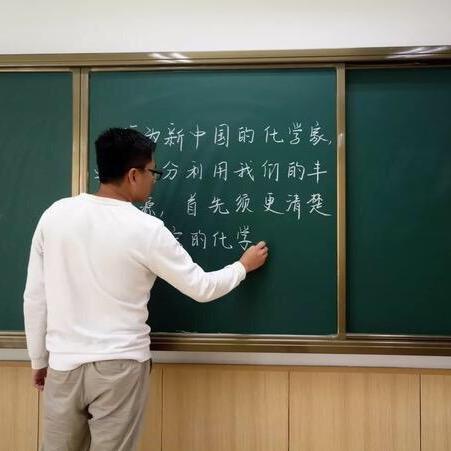 为新中国的化学家,
分利用我们的丰
源,首先须更清楚
的化学